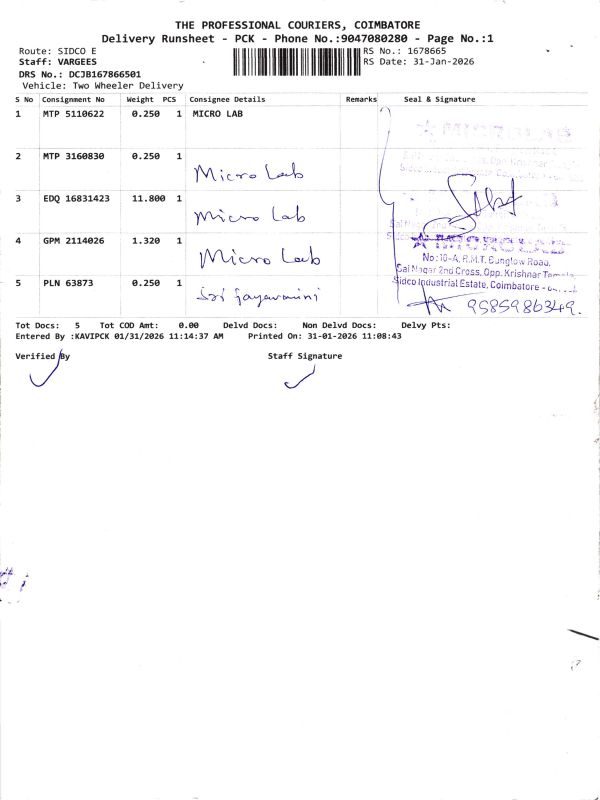 THE PROFESSIONAL COURIERS, COIMBATORE
Delivery Runsheet - PCK - Phone No.:9047080280 - Page No.:1
Route: SIDCO E
RS No.: 1678665
Staff: VARGEES
RS Date: 31-Jan-2026
DRS No.: DCJB167866501
Vehicle: Two Wheeler Delivery
S No Consignment No Weight PCS Consignee Details Remarks Seal & Signature
1 MTP 5110622 0.250 1 MICRO LAB
MICROLAB
2 MTP 3160830 0.250 1 Micro Lab
3 EDQ 16831423 11.800 1 Micro Lab
4 GPM 2114026 1.320 1 Micro Lab
MICROLAB
No:10-A, R.M.T. Bunglow Road,
Sai Nagar 2nd Cross, Opp. Krishnar Temple
Sidco Industrial Estate, Coimbatore -
5 PLN 63873 0.250 1 Sri
9585986349.
Tot Docs: 5 Tot COD Amt: 0.00 Delvd Docs: Non Delvd Docs: Delvy Pts:
Entered By :KAVIPCK 01/31/2026 11:14:37 AM Printed On: 31-01-2026 11:08:43
Verified By Staff Signature